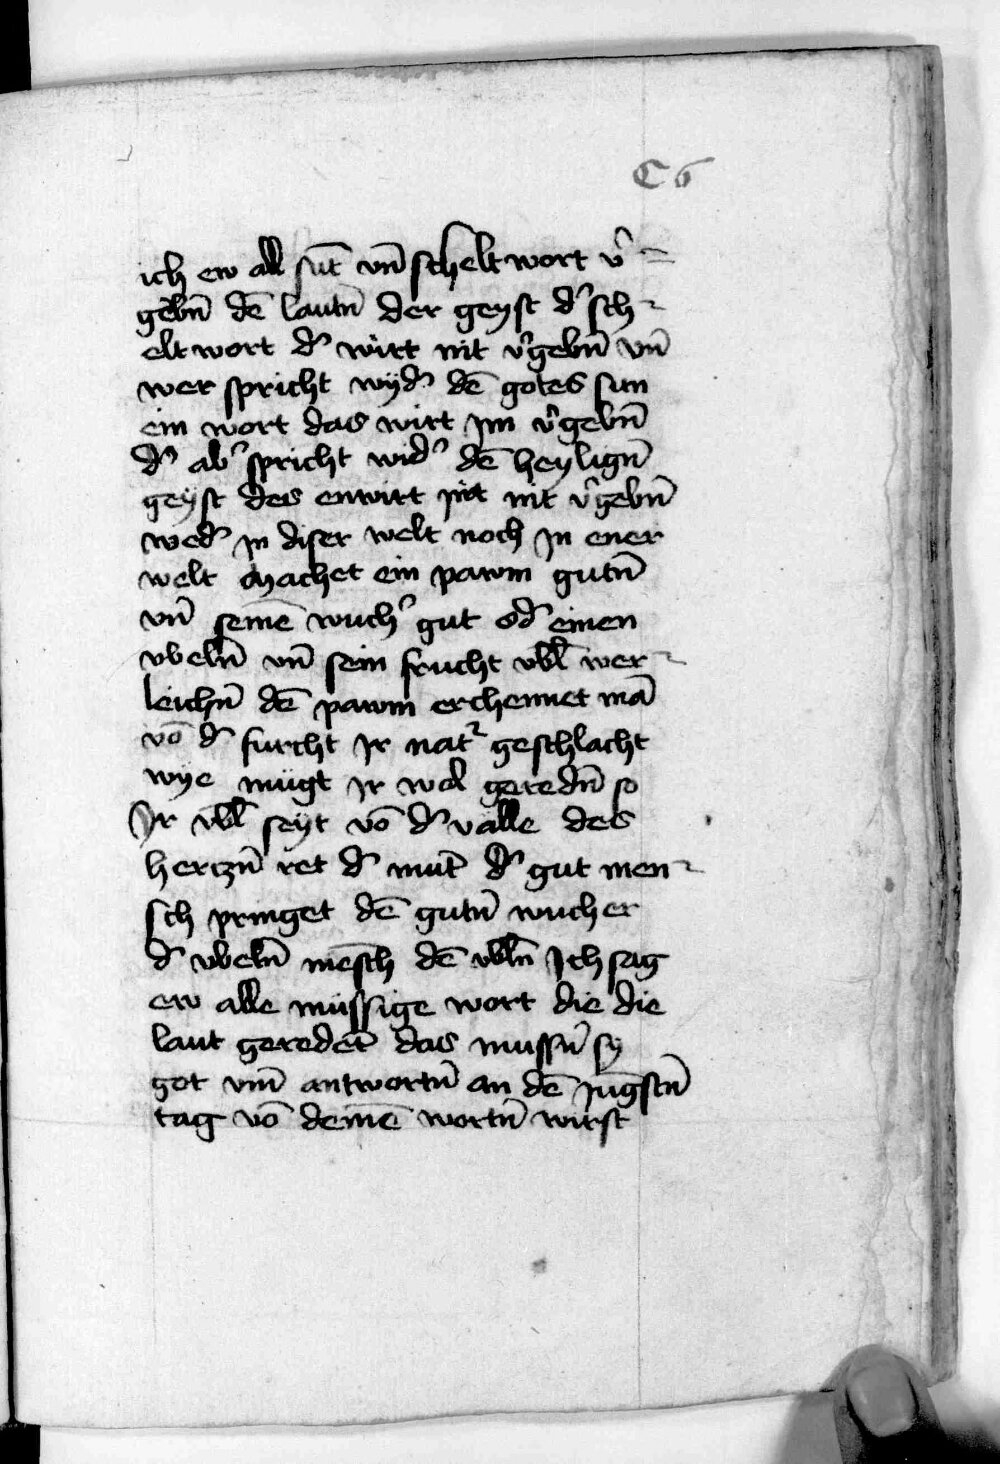 C 6
ich ew all sūt vn̄ scheltwort v᷑ =
gebn̄ dē lautn̄ der geyst d᷑ sch-
elt wort d᷑ wirt nit v᷑gebn̄ vn̄
wer spricht wyd᷑ dē gotes sun
ein wort das wirt im v᷑gebn̄
d᷑ ab᷑ spricht wid᷑ dē heylign̄
geyst des enwirt nit v᷑gebn̄
wed᷑ in diser welt noch in ener
welt Machet ein pawm gutn̄
vn̄ seinē wuch᷑ gut od᷑ einen
vbeln̄ vn̄ sein frucht vbl̄ wer-
leichn̄ dē pawm erchennet mā
vō d᷑ furcht Ir nat᷑ geschlacht
wye mügt ir wol geredn̄ so
Ir vbl̄ seyt vō d᷑ valle des
hertzn̄ ret d᷑ mūt d᷑ gut men-
sch pringet dē gutn̄ wucher
d᷑ vbeln̄ mēsch dē vbln̄ Ich sag
ew alle müssige wort die die
laut geredēt das mussn̄ sy
got vm̄ antwortn̄ an dē Jūgstn̄
tag vō deinē wortn̄ wirst